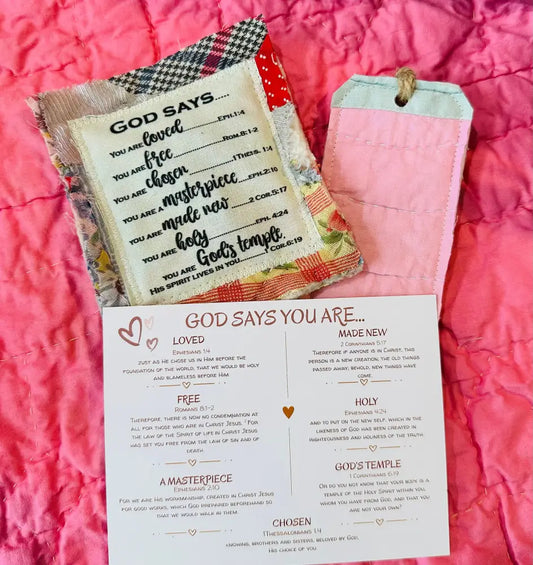 GOD SAYS.....
YOU ARE loved EPH.1:4
YOU ARE free ROM.8:1-2
YOU ARE chosen 1THESS. 1:4
YOU ARE A masterpiece EPH.2:10
YOU ARE made new 2 COR.5:17
YOU ARE holy EPH. 4:24
YOU ARE God's temple.
HIS SPIRIT LIVES IN YOU 1 COR.6:19
GOD SAYS YOU ARE...
LOVED
EPHESIANS 1:4
JUST AS HE CHOSE US IN HIM BEFORE THE
FOUNDATION OF THE WORLD, THAT WE WOULD BE HOLY
AND BLAMELESS BEFORE HIM
FREE
ROMANS 8:1-2
THEREFORE, THERE IS NOW NO CONDEMNATION AT
ALL FOR THOSE WHO ARE IN CHRIST JESUS. 2 FOR
THE LAW OF THE SPIRIT OF LIFE IN CHRIST JESUS
HAS SET YOU FREE FROM THE LAW OF SIN AND OF
DEATH.
A MASTERPIECE
EPHESIANS 2:10
FOR WE ARE HIS WORKMANSHIP, CREATED IN CHRIST JESUS
FOR GOOD WORKS, WHICH GOD PREPARED BEFOREHAND SO
THAT WE WOULD WALK IN THEM.
MADE NEW
2 CORINTHIANS 5:17
THEREFORE IF ANYONE IS IN CHRIST, THIS
PERSON IS A NEW CREATION; THE OLD THINGS
PASSED AWAY; BEHOLD, NEW THINGS HAVE
COME.
HOLY
EPHESIANS 4:24
AND TO PUT ON THE NEW SELF, WHICH IN THE
LIKENESS OF GOD HAS BEEN CREATED IN
RIGHTEOUSNESS AND HOLINESS OF THE TRUTH.
GOD'S TEMPLE
1 CORINTHIANS 6:19
OR DO YOU NOT KNOW THAT YOUR BODY IS A
TEMPLE OF THE HOLY SPIRIT WITHIN YOU,
WHOM YOU HAVE FROM GOD, AND THAT YOU
ARE NOT YOUR OWN?
CHOSEN
1THESSALONIANS 1:4
KNOWING, BROTHERS AND SISTERS, BELOVED BY GOD,
HIS CHOICE OF YOU